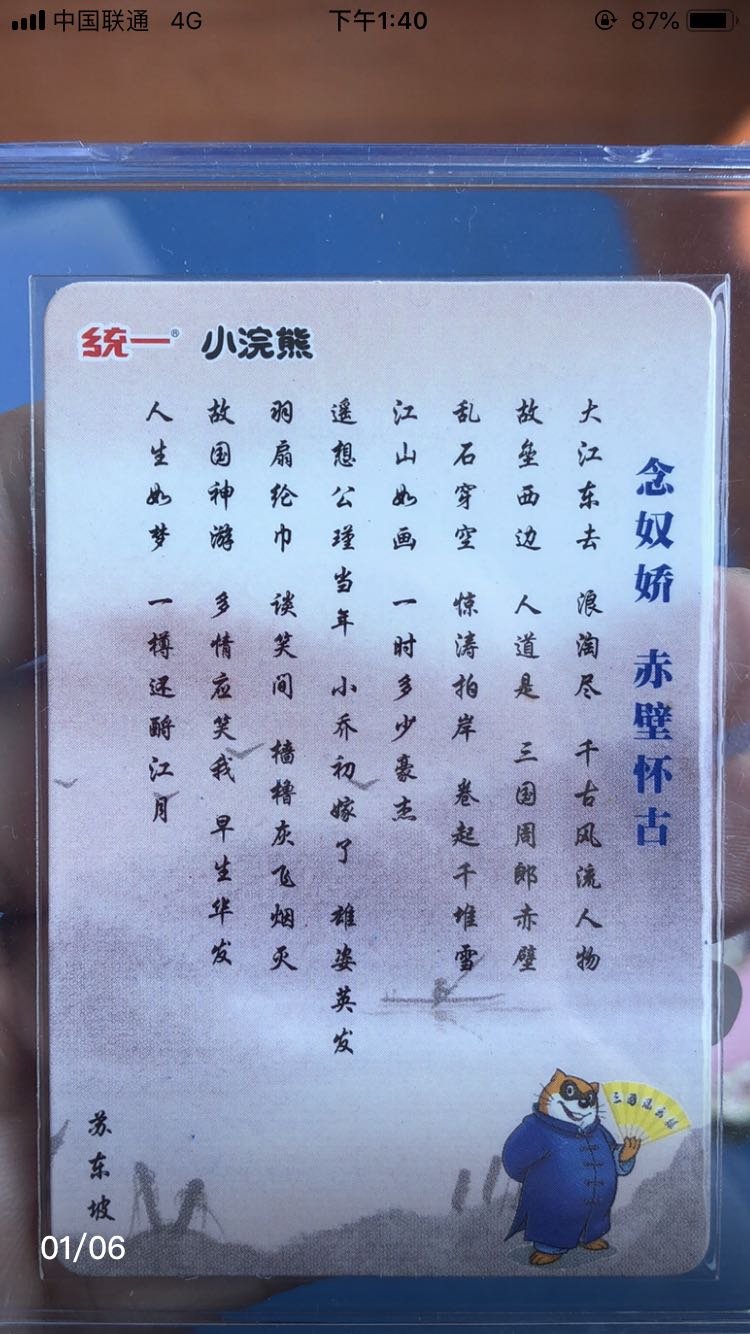 中国联通 4G 下午1:40 87%
统一® 小浣熊
念奴娇 赤壁怀古
大江东去 浪淘尽 千古风流人物
故垒西边 人道是 三国周郎赤壁
乱石穿空 惊涛拍岸 卷起千堆雪
江山如画 一时多少豪杰
遥想公瑾当年 小乔初嫁了 雄姿英发
羽扇纶巾 谈笑间 樯橹灰飞烟灭
故国神游 多情应笑我 早生华发
人生如梦 一樽还酹江月
苏东坡
01/06